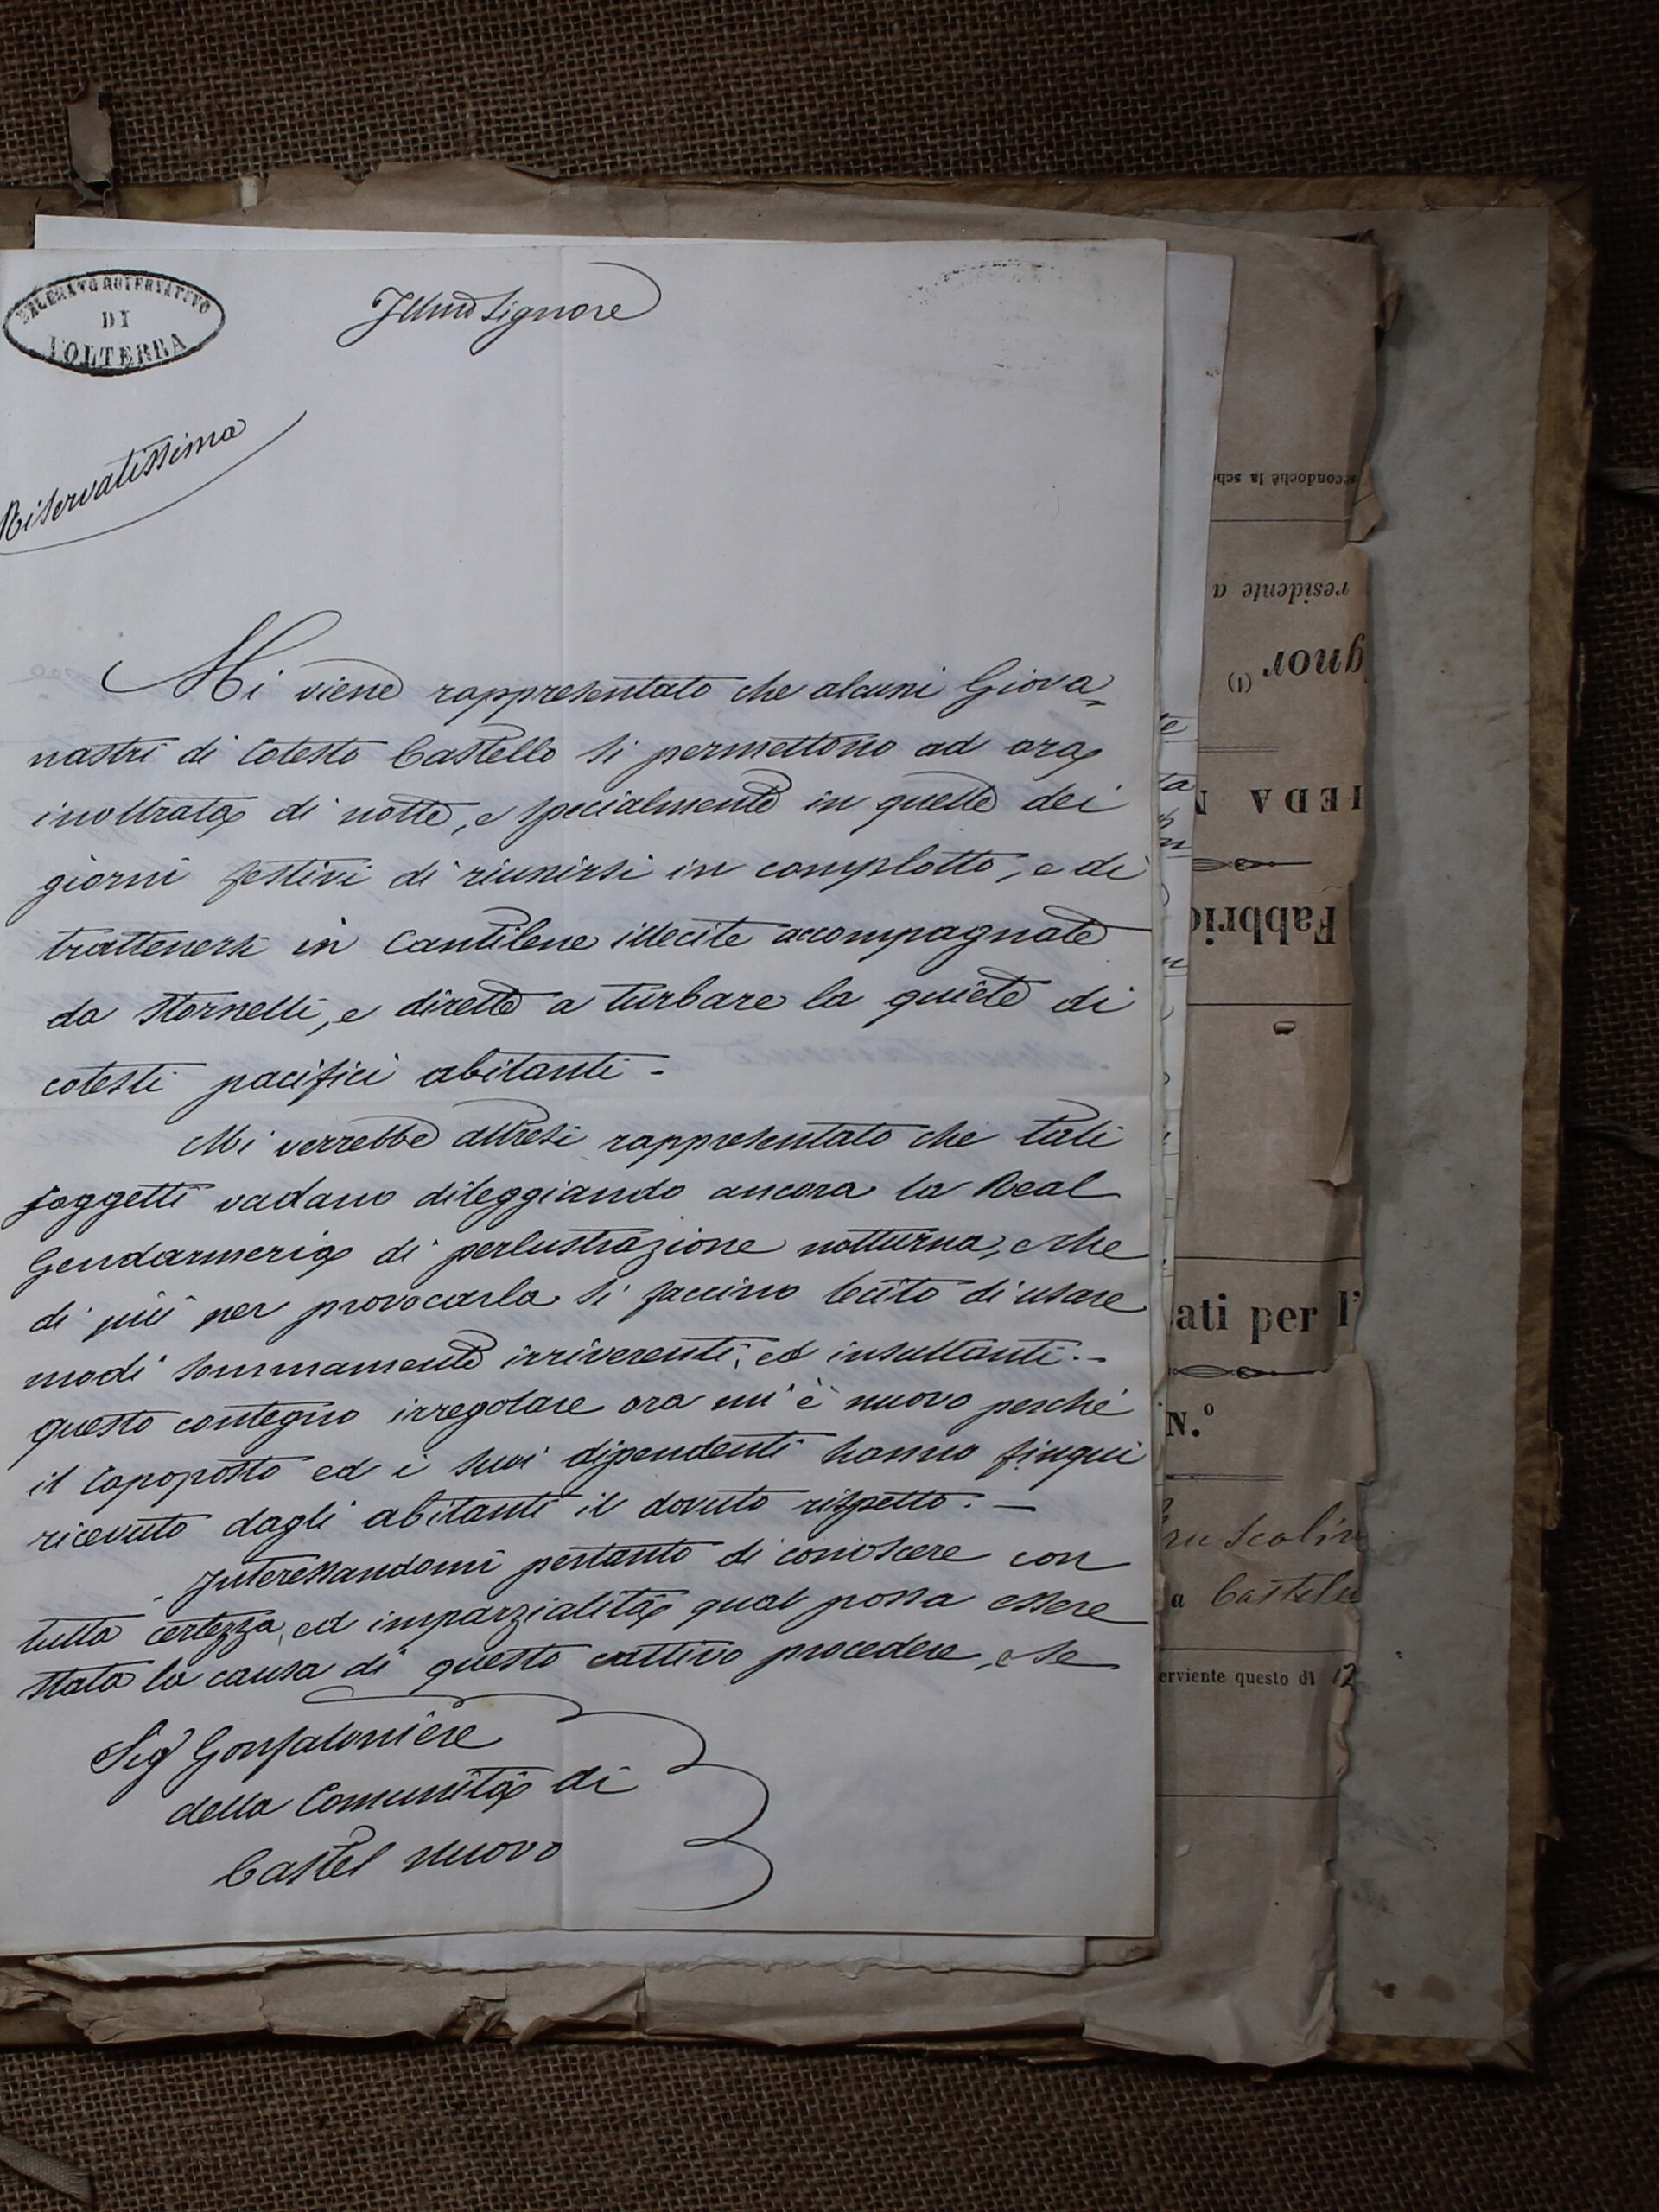 DELEGATO GOVERNATIVO
DI
VOLTERRA
Illmo Signore
Riservatissima
Mi viene rappresentato che alcuni Giova=
nastri di Cotesto Castello si permettono ad ora
inoltrata di notte, e specialmente in quelle dei
giorni festivi di riunirsi in complotto, e di
trattenersi in Cantilene illecite accompagnate
da Stornelli, e dirette a turbare la quiete di
cotesti pacifici abitanti -
Mi verrebbe altresi rappresentato che tali
soggetti vadano dileggiando ancora la Real
Gendarmeria di perlustrazione notturna, e che
di più per provocarla si faccino lecito di usare
modi sommamente irriverenti, ed insultanti. -
questo contegno irregolare ora mi è nuovo perché
il Capoposto ed i suoi dipendenti hanno finqui
ricevuto dagli abitanti il dovuto rispetto. -
Interessandomi pertanto di conoscere con
tutta certezza, ed imparzialità qual possa essere
stata la causa di questo cattivo procedere, e se
Sigr Gonfaloniere
della Comunità di
Castel nuovo
secondochè la sche
residente a
gnor (1)
IEDA
Fabbric
ati per l'
N.º
a Castel
erviente questo di 12